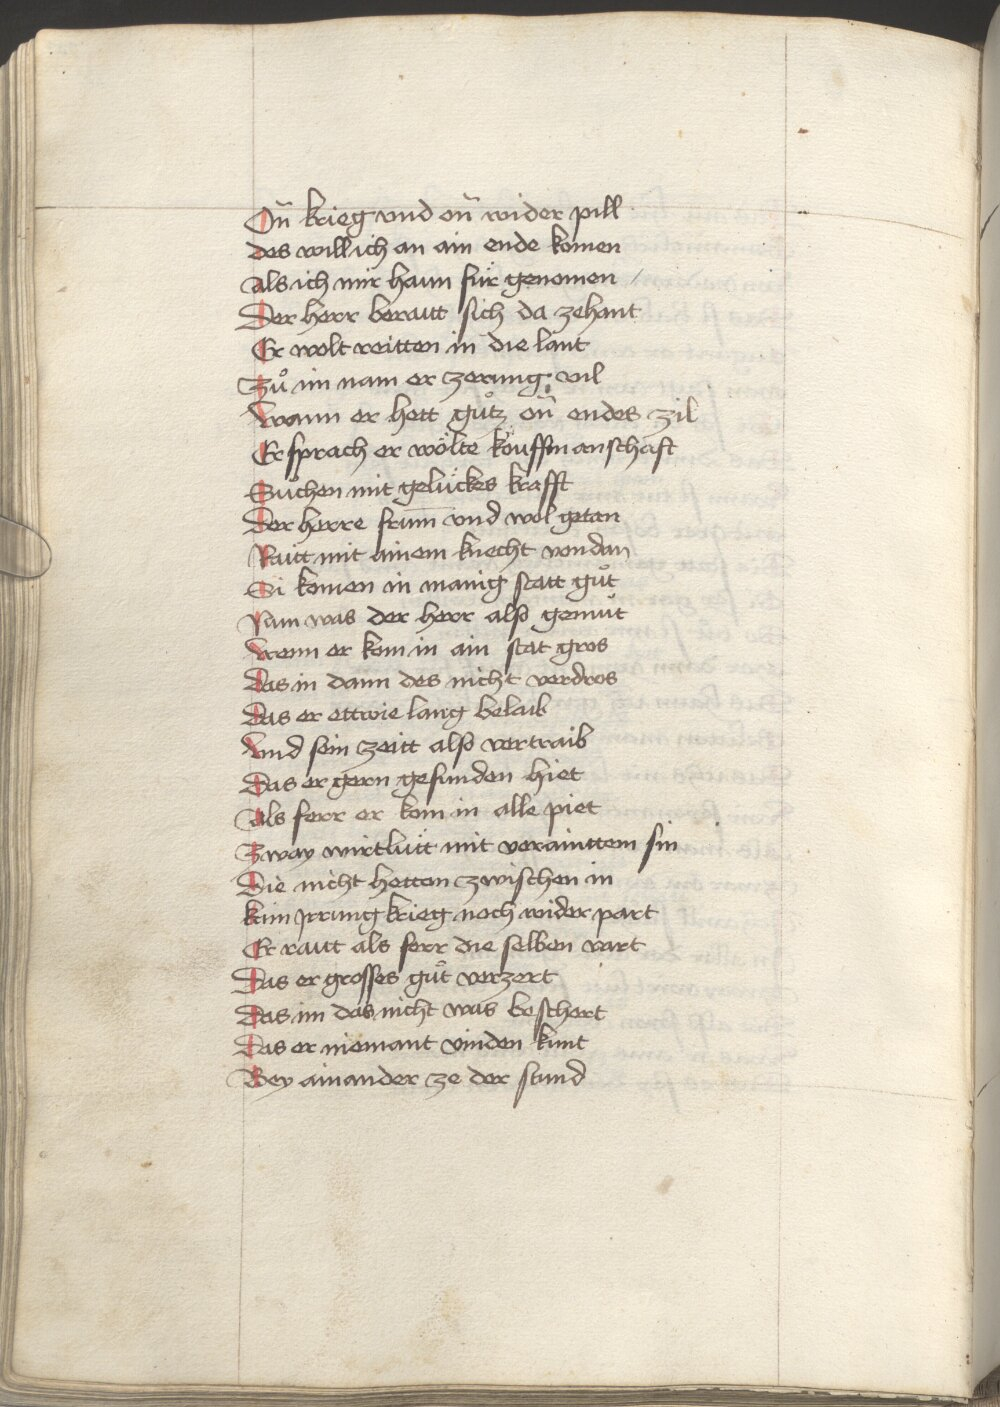 On̄ krieg vnd on̄ wider pill
des will ich an ain ende komen
Als ich mir haun für genomen
Der herr beraitt sich da zehant
Er wolt reitten in die lant
Zů im nam er zerung vil
Wann er hett gůtz on̄ endes zil
Er sprach er wölte kouffmanschaft
Sůchen mit gelückes krafft
Der herre frum̄ vnd wol getan
Raitt mit ainem knecht von dan
Si komen in manig statt gůt
Nun was der herr also gemůt
Wenn er kom in ain stat gros
Das in dann des nicht verdros
Das er ettwie lang belaib
Vnd sein zeitt also vertraib
Das er gern gefunden hiet
Als ferr er kom in alle piet
Zway wirtlütt mit verainttem sin
Die nicht hetten zwischen in
kain jrrung krieg noch wider part
Er raitt als ferr die selben vart
Das er grosses gůt verzert
Das im das nicht was beschert
Das er niemant vinden kunt
Bey ainander ze der stund